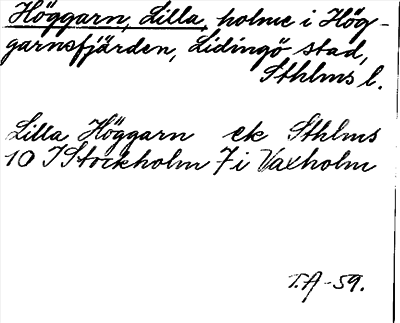 Höggarn, Lilla, holme i Hög-
garnsfjärden, Lidingö stad,
Sthlms l.
Lilla Höggarn ek Sthlms
10 I Stockholm 7 i Vaxholm
T.A-59.